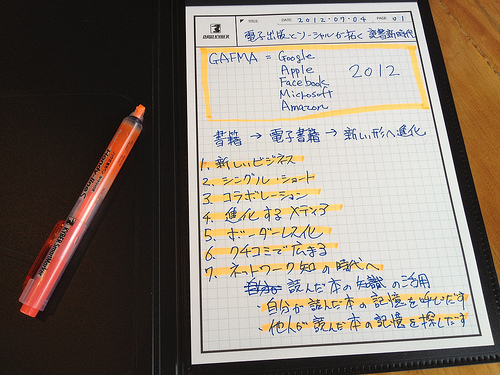 TITLE DATE 2012.07.04 PAGE 01
電子出版とソーシャルが拓く 読書新時代
GAFMA = Google
Apple
Facebook
Microsoft
Amazon
2012
書籍 → 電子書籍 → 新しい形へ進化
1. 新しいビジネス
2. シングル・ショート
3. コラボレーション
4. 進化するメディア
5. ボーダーレス化
6. クチコミで広まる
7. ネットワーク知の時代へ
読んだ本の知識の活用
・自分が読んだ本の記憶を呼びだす
・他人が読んだ本の記憶を探しだす